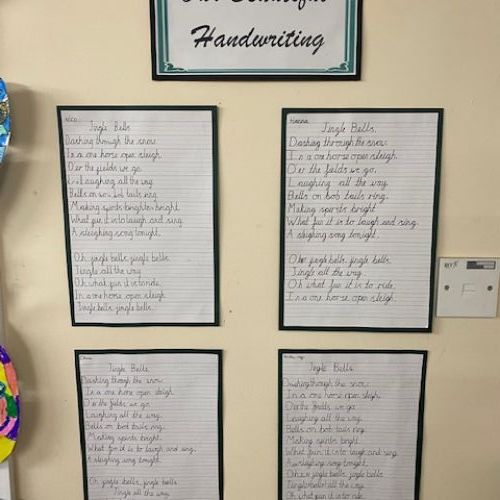 Our Beautiful
Handwriting
Nico
Jingle Bells
Dashing through the snow
In a one horse open sleigh.
O'er the fields we go
Laughing all the way.
Bells on bob tails ring.
Making spirits bright
What fun it is to laugh and sing
A sleighing song tonight.
Oh jingle bells, jingle bells.
Jingle all the way
Oh what fun it is to ride.
In a one horse open sleigh.
Jingle bells, jingle bells.
Hanna
Jingle Bells.
Dashing through the snow
In a one horse open sleigh.
O'er the fields we go.
Laughing all the way.
Bells on bob tails ring.
Making spirits bright
What fun it is to laugh and sing.
A sleighing song tonight.
Oh jingle bells, jingle bells.
Jingle all the way.
Oh what fun it is to ride.
In a one horse open sleigh.
Jingle Bells.
Dashing through the snow
In a one horse open sleigh.
O'er the fields we go
Laughing all the way.
Bells on bob tails ring.
Making spirits bright.
What fun it is to laugh and sing.
A sleighing song tonight.
Oh jingle bells, jingle bells
Jingle all the way
Jingle Bells
Dashing through the snow
In a one horse open sleigh.
O'er the fields we go
Laughing all the way.
Bells on bob tails ring.
Making spirits bright.
What fun it is to laugh and sing.
A sleighing song tonight.
Oh jingle bells, jingle bells
Jingle all the way.
Oh what fun it is to ride